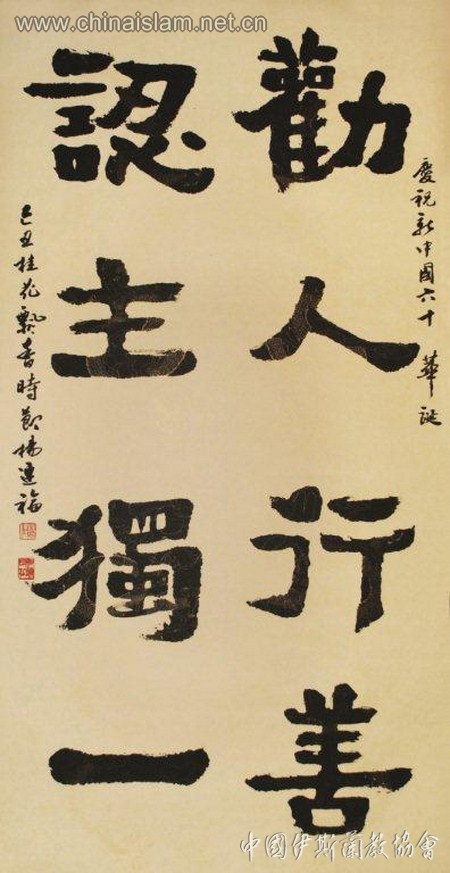 www.chinaislam.net.cn
慶祝新中國六十華誕
勸人行善
認主獨一
己丑桂花飄香時節楊連福
中國伊斯蘭教協會